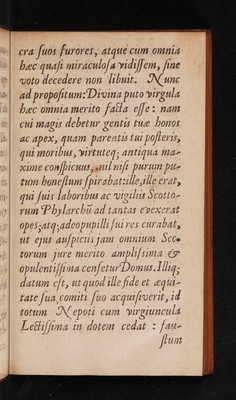 cra suos furores, atque cum omnia
hæc quasi miraculosa vidissem, sine
voto decedere non libuit. Nunc
ad propositum: Divina puto virgula
hæc omnia merito facta esse: nam
cui magis debetur gentis tuæ honos
ac apex, quam parentis tui posteris,
qui moribus, virtuteq; antiqua ma-
xime conspicuus, nil nisi purum pu-
tum honestum spirabat: ille, ille erat,
qui suis laboribus ac vigiliis Scotto-
rum Phylarchũ ad tantas evexerat
opes; atq; adeo pupilli sui res curabat,
ut ejus auspiciis jam omnium Sco-
torum jure merito amplissima &
opulentissima censetur Domus. Illiq;
datum est, ut quod ille fide et æqui-
tate sua, comiti suo acquisiverit, id
totum Nepoti cum virgiuncula
Lectissima in dotem cedat : fau-
stum